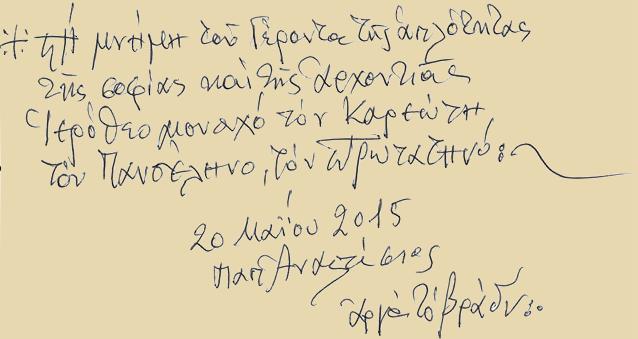 ⁜ τῇ μνήμῃ τοῦ Γέροντα τῆς ἁπλότητας
τῆς σοφίας καὶ τῆς ἀρχοντιᾶς
Ἱερόθεο μοναχό τόν Καρεώτη,
τόν Πανσέληνο, τόν Πρωτατηνό:~
20 Μαΐου 2015
παπΑναστάσιος
ἀργὰ τὸ βράδυ:.